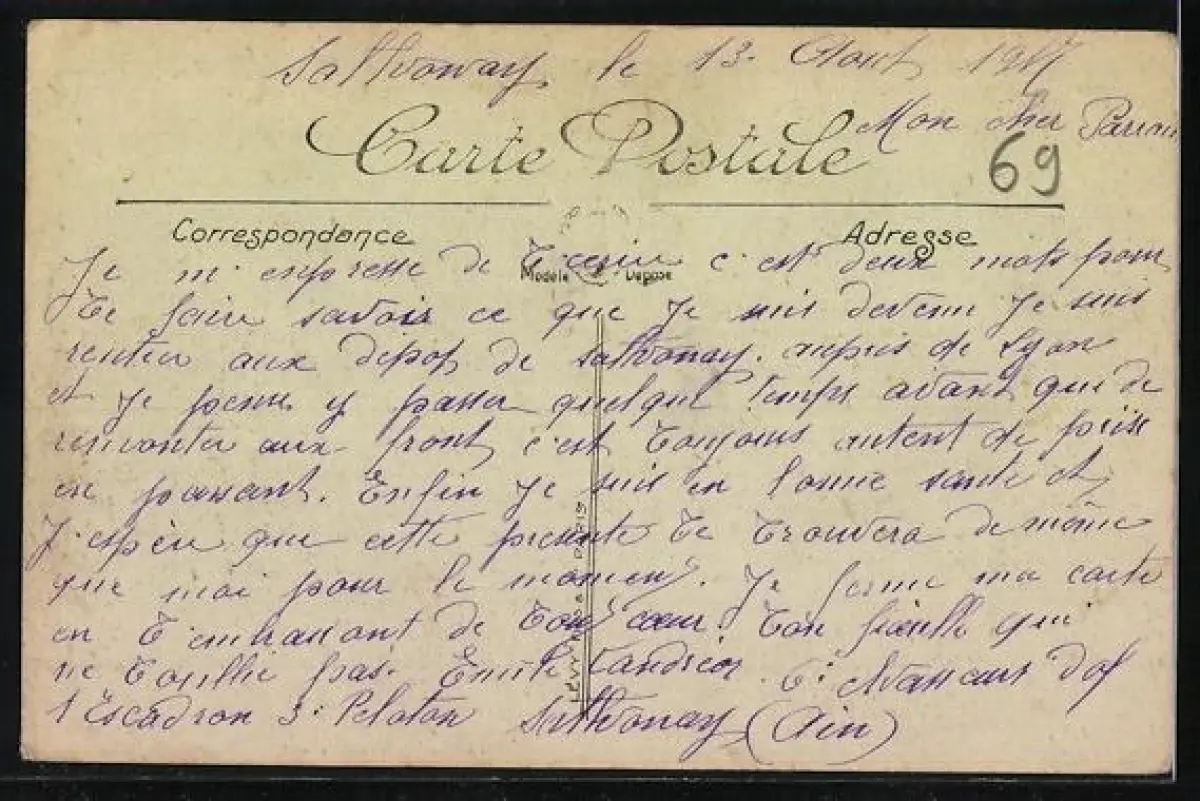 Sathonay le 13 Aout 1917
Mon cher Parrain
Carte Postale
69
Correspondance
Adresse
Je m'empresse de t'ecrire c'est deux mots pour
Modèle Déposé
te faire savoir ce que je suis devenu je suis
rentrer aux dépot de Sathonay. aupris de Lyon
et je pense y passer quelque temps avant que de
remonter aux front, c'est toujours autent de prise
en passant. Enfin je suis en bonne santé et
j'espère que cette presente te trouvera de même
que moi pour le moment. Je ferme ma carte
en t'embrassant de tout cœur. Ton fieulle qui
ne t'oublie pas. Emile 6e chasseurs d'af
1 Escadron 3e Peloton Sathonay (Ain)
LEVY PARIS